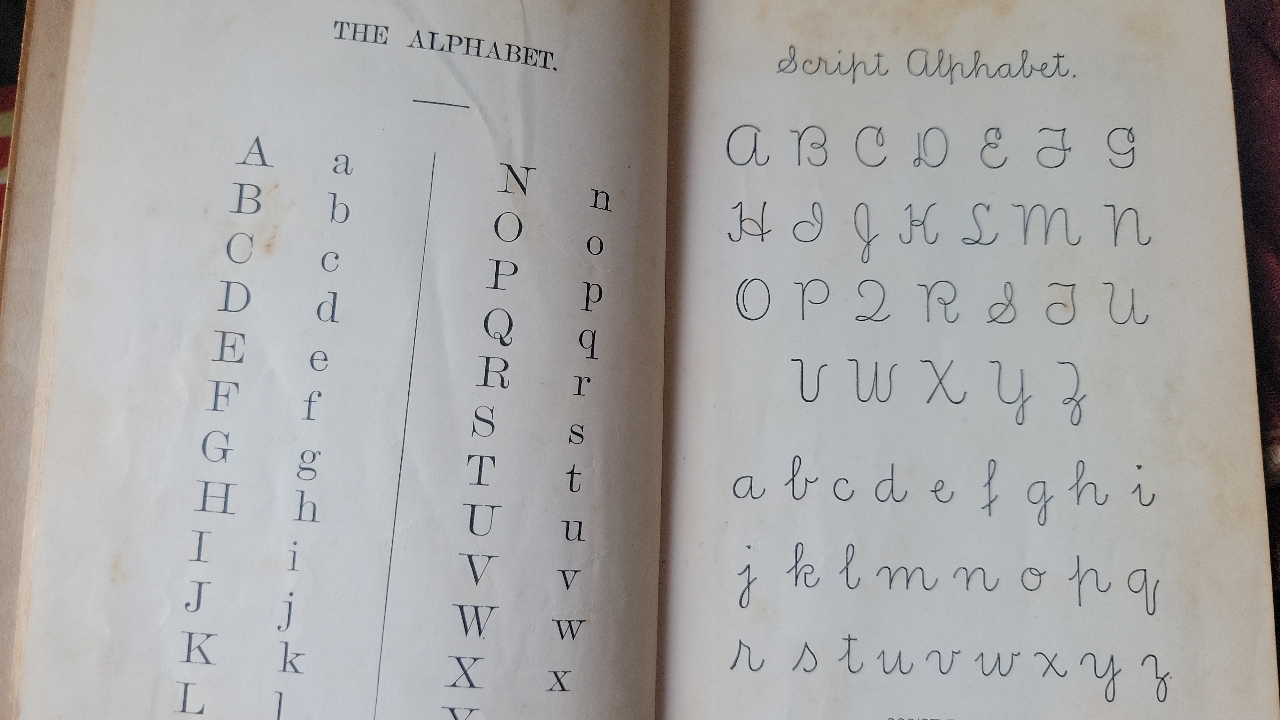 THE ALPHABET.
A a
B b
C c
D d
E e
F f
G g
H h
I i
J j
K k
L l
N n
O o
P p
Q q
R r
S s
T t
U u
V v
W w
X x
Script Alphabet.
A B C D E F G
H I J K L M N
O P Q R S T U
V W X Y Z
a b c d e f g h i
j k l m n o p q
r s t u v w x y z